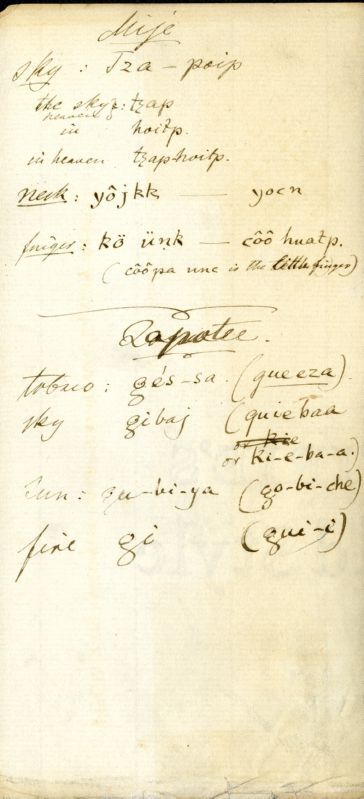 Mije
sky : Tza - poip
the sky : tzap
heaven
in hoitp.
in heaven tzaphoitp.
neck : yôjkk — yocn
finger : kö üṇk — côô huatp.
(côôpa unc is the little finger)
Zapotec.
tobaco : gés-sa. (queeza).
sky gibaj (quiebaa
or kie
or ki-e-ba-a.)
sun : gu-bi-ya (go-bi-che)
fire gi (gui-i)